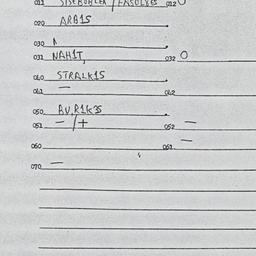 011 SISEBOHLEA / FASULYES 012 O
020 ARB15
030 A
031 NAH1T, 032 O
040 STRALK15
041 — 042
050 AV,R1K35
051 - /+ 052 —
060 061 —
070 —